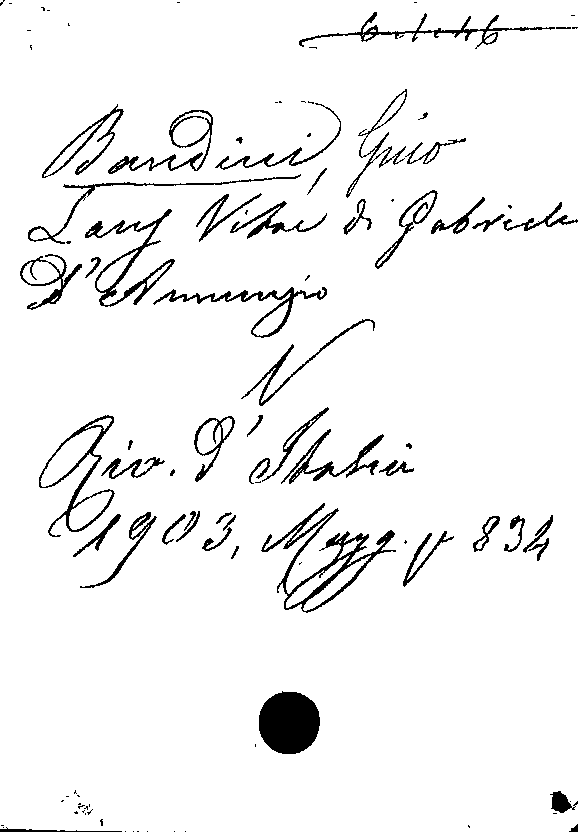 Bandini, Gino
Laus Vitae di Gabriele
D'Annunzio
V
Riv. D'Italia
1903, Magg. p 834